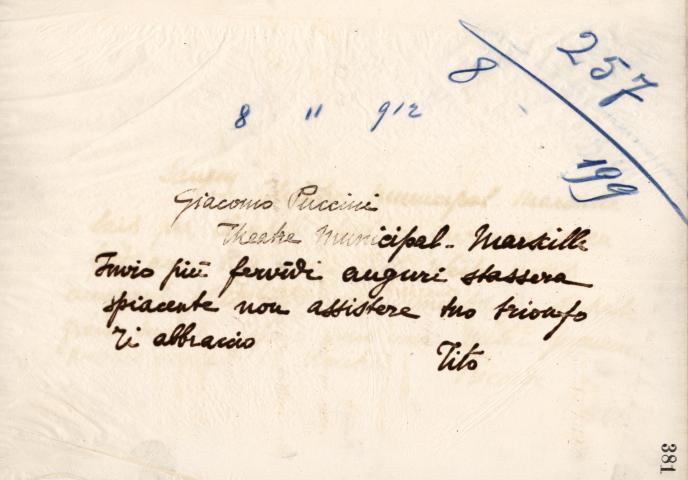 257
8
8 11 912
199
Giacomo Puccini
Theatre Municipal - Marseille
Invio più fervidi auguri stassera
spiacente non assistere tuo trionfo
Ti abbraccio
Tito
381